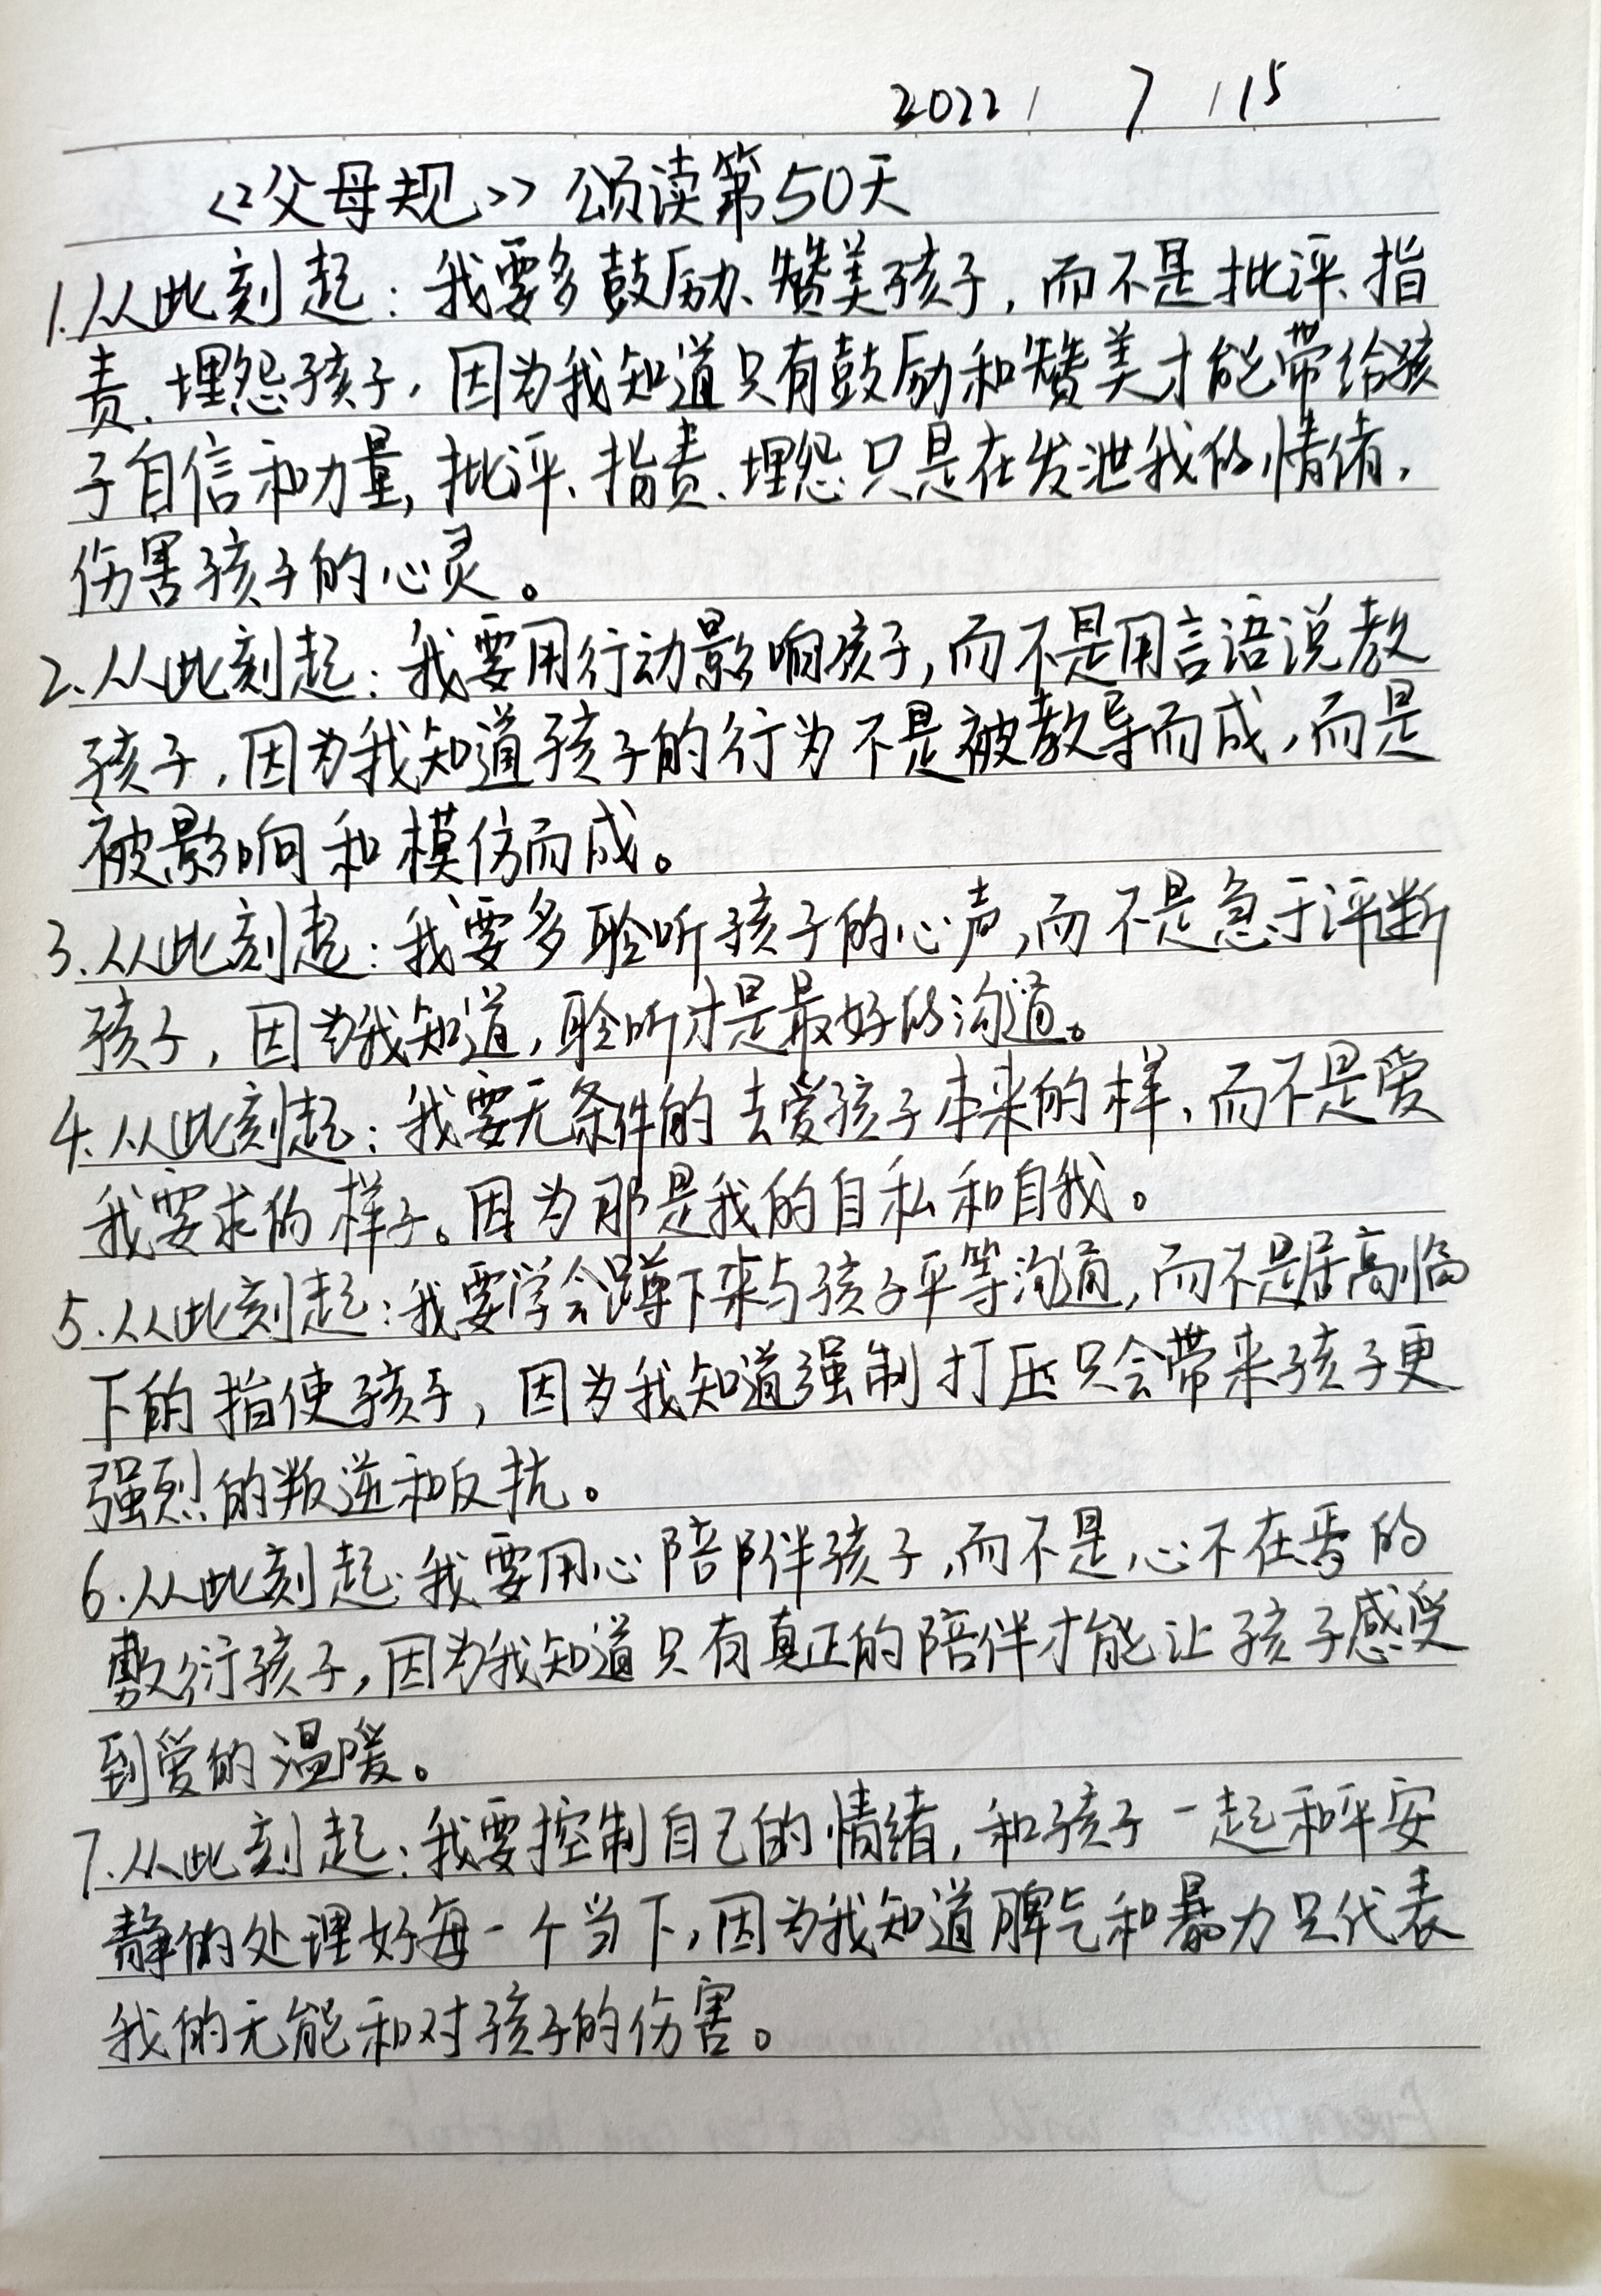 2022 / 7 / 15
《父母规》颂读第50天
1.从此刻起：我要多鼓励、赞美孩子，而不是批评、指
责、埋怨孩子，因为我知道只有鼓励和赞美才能带给孩
子自信和力量，批评、指责、埋怨只是在发泄我的情绪，
伤害孩子的心灵。
2.从此刻起：我要用行动影响孩子，而不是用言语说教
孩子，因为我知道孩子的行为不是被教导而成，而是
被影响和模仿而成。
3.从此刻起：我要多聆听孩子的心声，而不是急于评断
孩子，因为我知道，聆听才是最好的沟通。
4.从此刻起：我要无条件的去爱孩子本来的样，而不是爱
我要求的样子。因为那是我的自私和自我。
5.从此刻起：我要学会蹲下来与孩子平等沟通，而不是居高临
下的指使孩子，因为我知道强制打压只会带来孩子更
强烈的叛逆和反抗。
6.从此刻起：我要用心陪伴孩子，而不是心不在焉的
敷衍孩子，因为我知道只有真正的陪伴才能让孩子感受
到爱的温暖。
7.从此刻起：我要控制自己的情绪，和孩子一起和平安
静的处理好每一个当下，因为我知道脾气和暴力只代表
我的无能和对孩子的伤害。